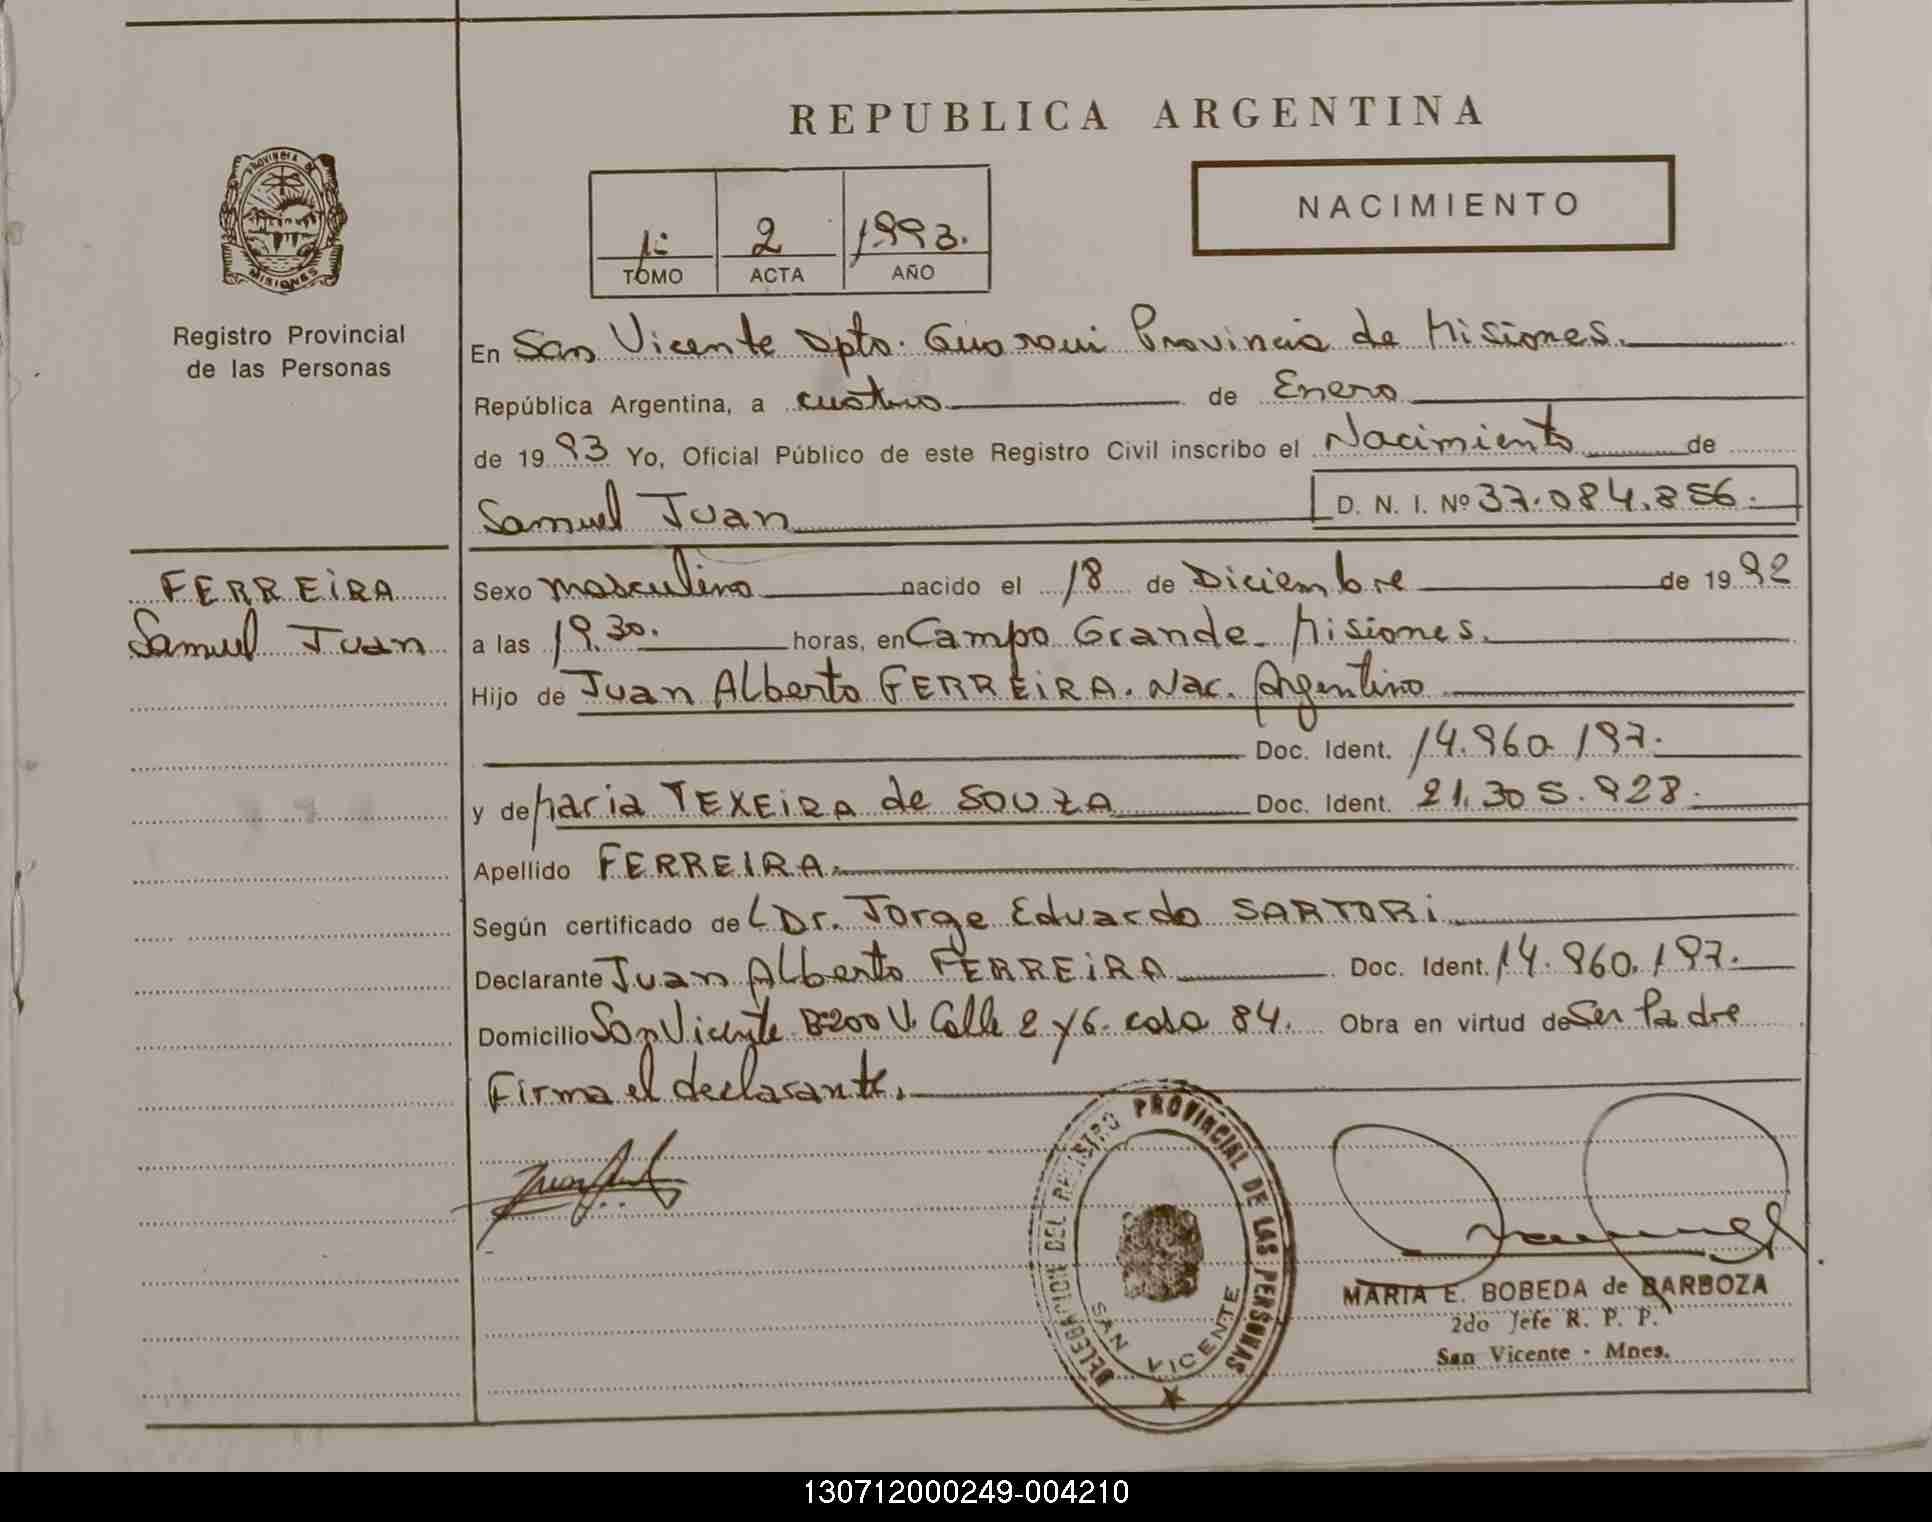 REPUBLICA ARGENTINA
PROVINCIA DE
MISIONES
Registro Provincial
de las Personas
NACIMIENTO
1º 2 1993.
TOMO ACTA AÑO
En San Vicente Dpto. Guarani Provincia de Misiones.
República Argentina, a cuatro de Enero
de 1993 Yo, Oficial Público de este Registro Civil inscribo el Nacimiento de
Samuel Juan D. N. I. Nº 37.084.856.
FERREIRA
Samuel Juan
Sexo masculino nacido el 18 de Diciembre de 1992
a las 19.30. horas, en Campo Grande - Misiones.
Hijo de Juan Alberto FERREIRA. Nac. Argentino
Doc. Ident. 14.960.197.
y de Maria TEXEIRA de SOUZA Doc. Ident. 21.305.928.
Apellido FERREIRA.
Según certificado del Dr. Jorge Eduardo SARTORI
Declarante Juan Alberto FERREIRA Doc. Ident. 14.960.197.
Domicilio San Vicente Bº 200 V. Calle 2 y 6. casa 84. Obra en virtud de Ser Padre
Firma el declarante.
DELEGACION DEL REGISTRO PROVINCIAL DE LAS PERSONAS
SAN VICENTE
MARIA E. BOBEDA de BARBOZA
2do Jefe R. P. P.
San Vicente - Mnes.
130712000249-004210